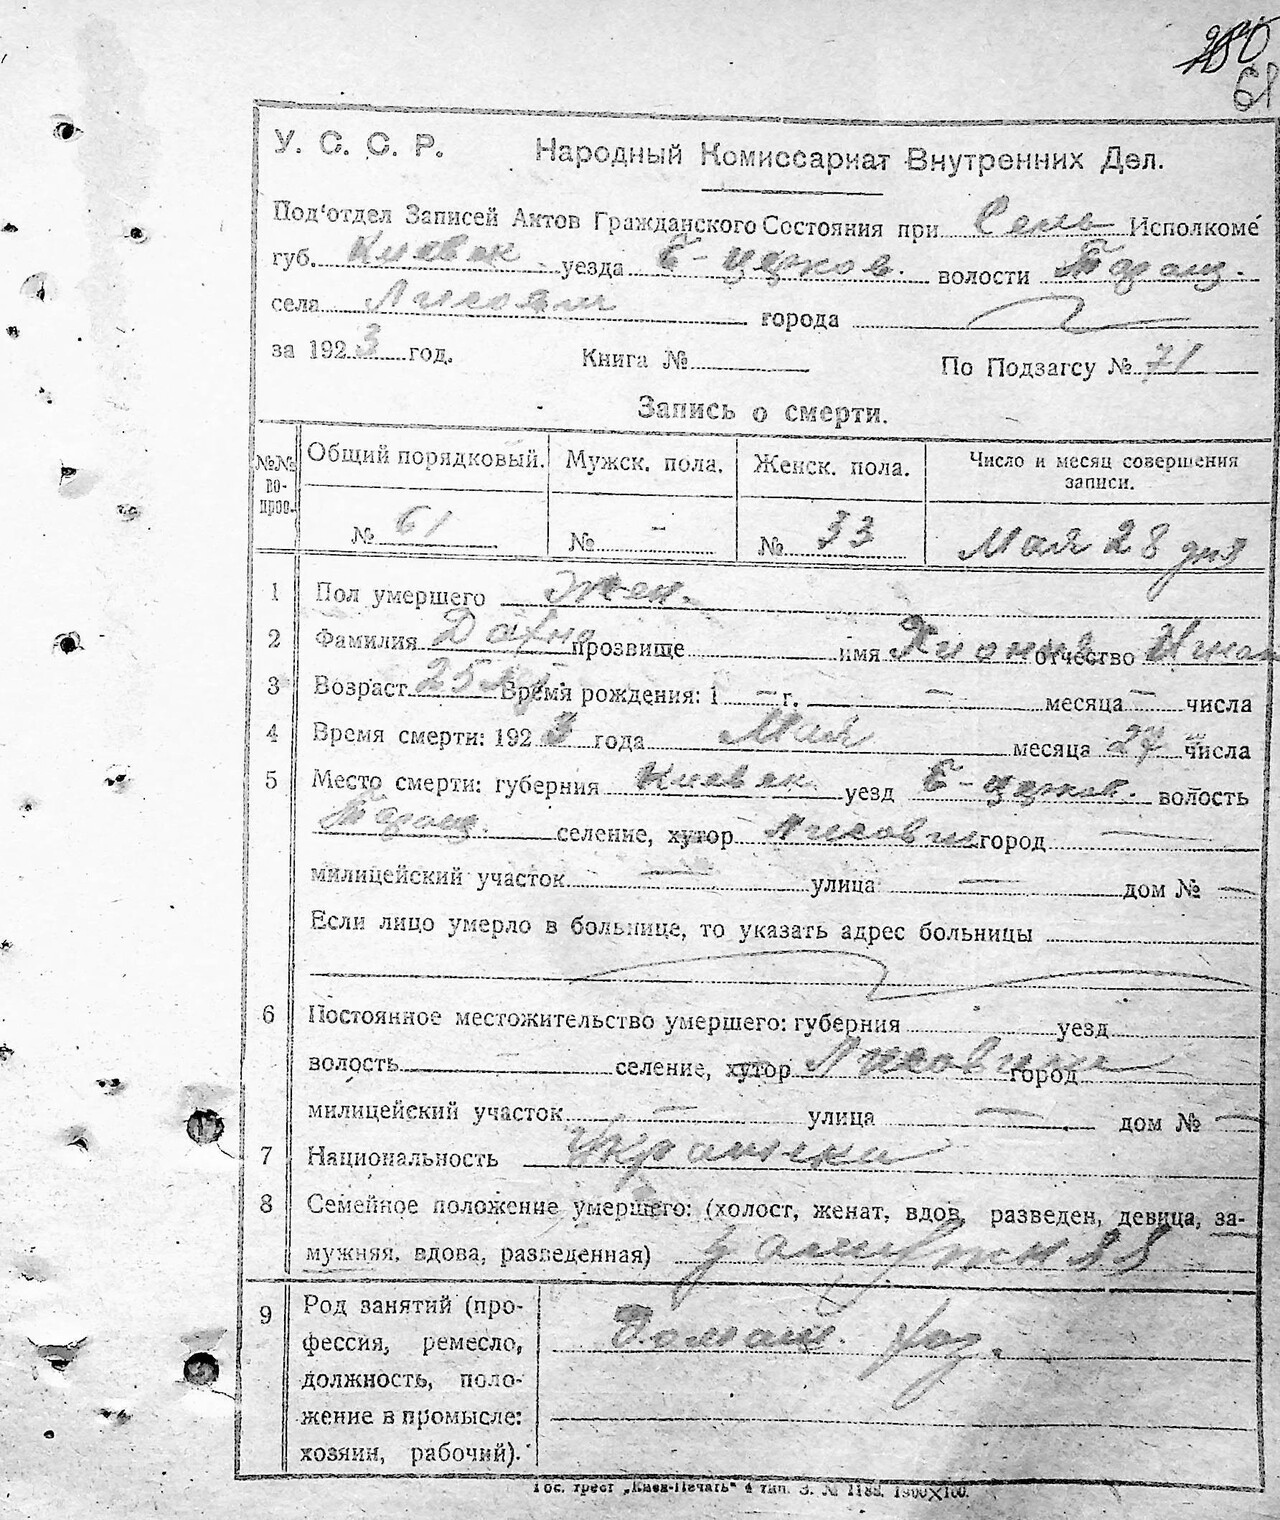 61
У. С. С. Р. Народный Комиссариат Внутренних Дел.
Под'отдел Записей Актов Гражданского Состояния при Сель Исполкоме
губ. Киевск уезда Б-церков. волости Таращ.
села города
за 1923 год. Книга № По Подзагсу № 71
Запись о смерти.
№№ вопров. Общий порядковый. Мужск. пола. Женск. пола. Число и месяц совершения записи.
№ 61 № - № 33 Мая 28 дня
1 Пол умершего жен.
2 Фамилия прозвище имя отчество
3 Возраст 25 Время рождения: 1 — г. — месяца — числа
4 Время смерти: 1923 года Мая месяца 27 числа
5 Место смерти: губерния Киевск. уезд Б-церков. волость
Таращ. селение, хутор город —
милицейский участок — улица — дом № —
Если лицо умерло в больнице, то указать адрес больницы
6 Постоянное местожительство умершего: губерния уезд
волость — селение, хутор город
милицейский участок — улица — дом № —
7 Национальность
8 Семейное положение умершего: (холост, женат, вдов, разведен, девица, за-
мужняя, вдова, разведенная)
9 Род занятий (про-
фессия, ремесло,
должность, поло-
жение в промысле:
хозяин, рабочий).
Домаш. хоз.
Гос. трест „Киев-Печать" 4 тип. З. № 1183. 1300×100.